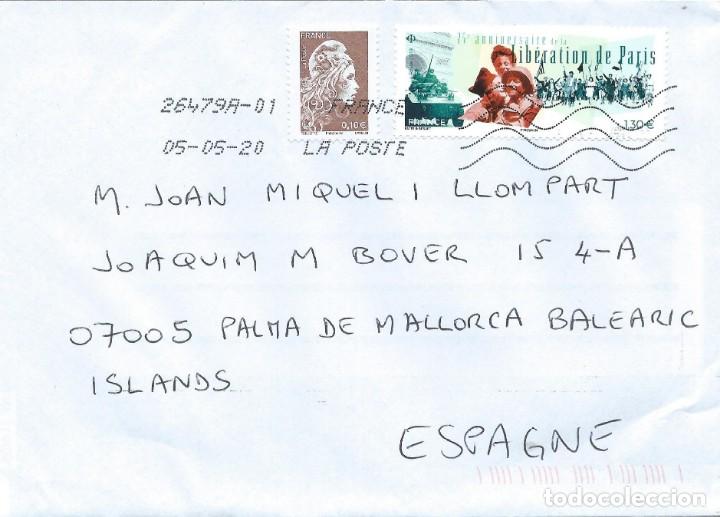 FRANCE
0,10€
75e anniversaire de la
libération de Paris
FRANCE
1,30€
26479A-01 FRANCE
05-05-20 LA POSTE
M. JOAN MIQUEL I LLOMPART
JOAQUIM M BOVER 15 4-A
07005 PALMA DE MALLORCA BALEARIC
ISLANDS
ESPAGNE
todocoleccion